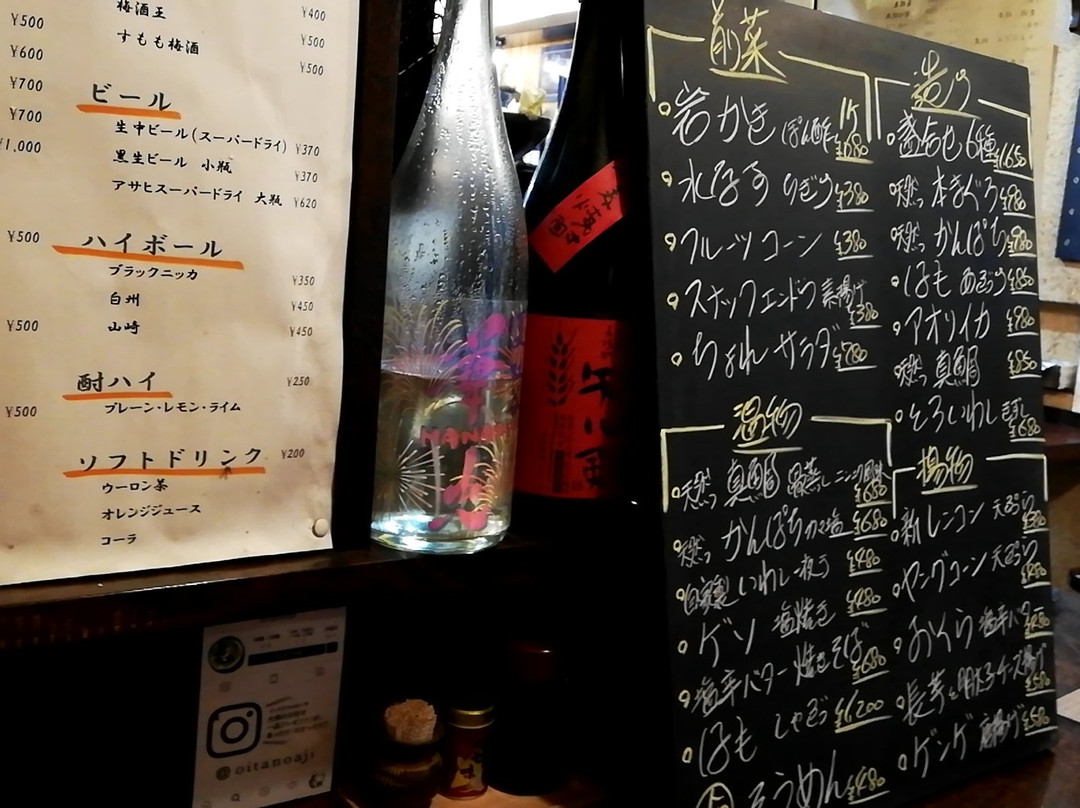 ¥500
¥600
¥700
¥700
¥1,000
¥500
¥500
¥500
梅酒王 ¥400
すもも梅酒 ¥500
¥500
ビール
生中ビール(スーパードライ) ¥370
黒生ビール 小瓶 ¥370
アサヒスーパードライ 大瓶 ¥620
ハイボール
ブラックニッカ ¥350
白州 ¥450
山崎 ¥450
酎ハイ ¥250
プレーン・レモン・ライム
ソフトドリンク ¥200
ウーロン茶
オレンジジュース
コーラ
@oitanoaji
前菜
岩かき ぽん酢 1ケ ¥680
水なす ¥380
フルーツコーン ¥380
スナップエンドウ 素揚げ ¥380
ちょれサラダ ¥780
温物
天然 真鯛 ¥680
天然 かんぱち ¥680
自家製 いわし一夜干 ¥480
ゲソ 塩焼き ¥480
塩辛バター焼きそば ¥680
はも しゃぶ ¥1,200
そうめん ¥480
造り
盛合せ 6種 ¥1,650
天然 本まぐろ ¥980
天然 かんぱち ¥980
はも あぶり
アオリイカ ¥980
天然 真鯛 ¥850
とろいわし ¥680
揚物
新レンコン 天ぷら
ヤングコーン 天ぷら
おくら 塩辛バター
長芋と明太子チーズ揚げ ¥580
ゲンゲ 唐揚げ ¥580